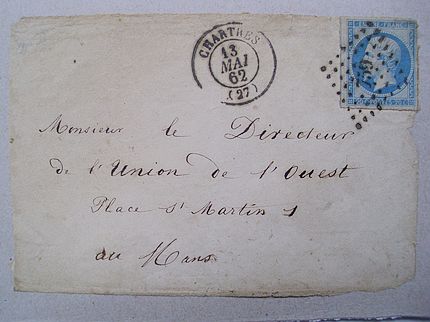 CHARTRES
13
MAI
62
(27)
EMPIRE FRANC
Monsieur le Directeur
de l'Union de l'Ouest
Place St Martin 1
au Mans